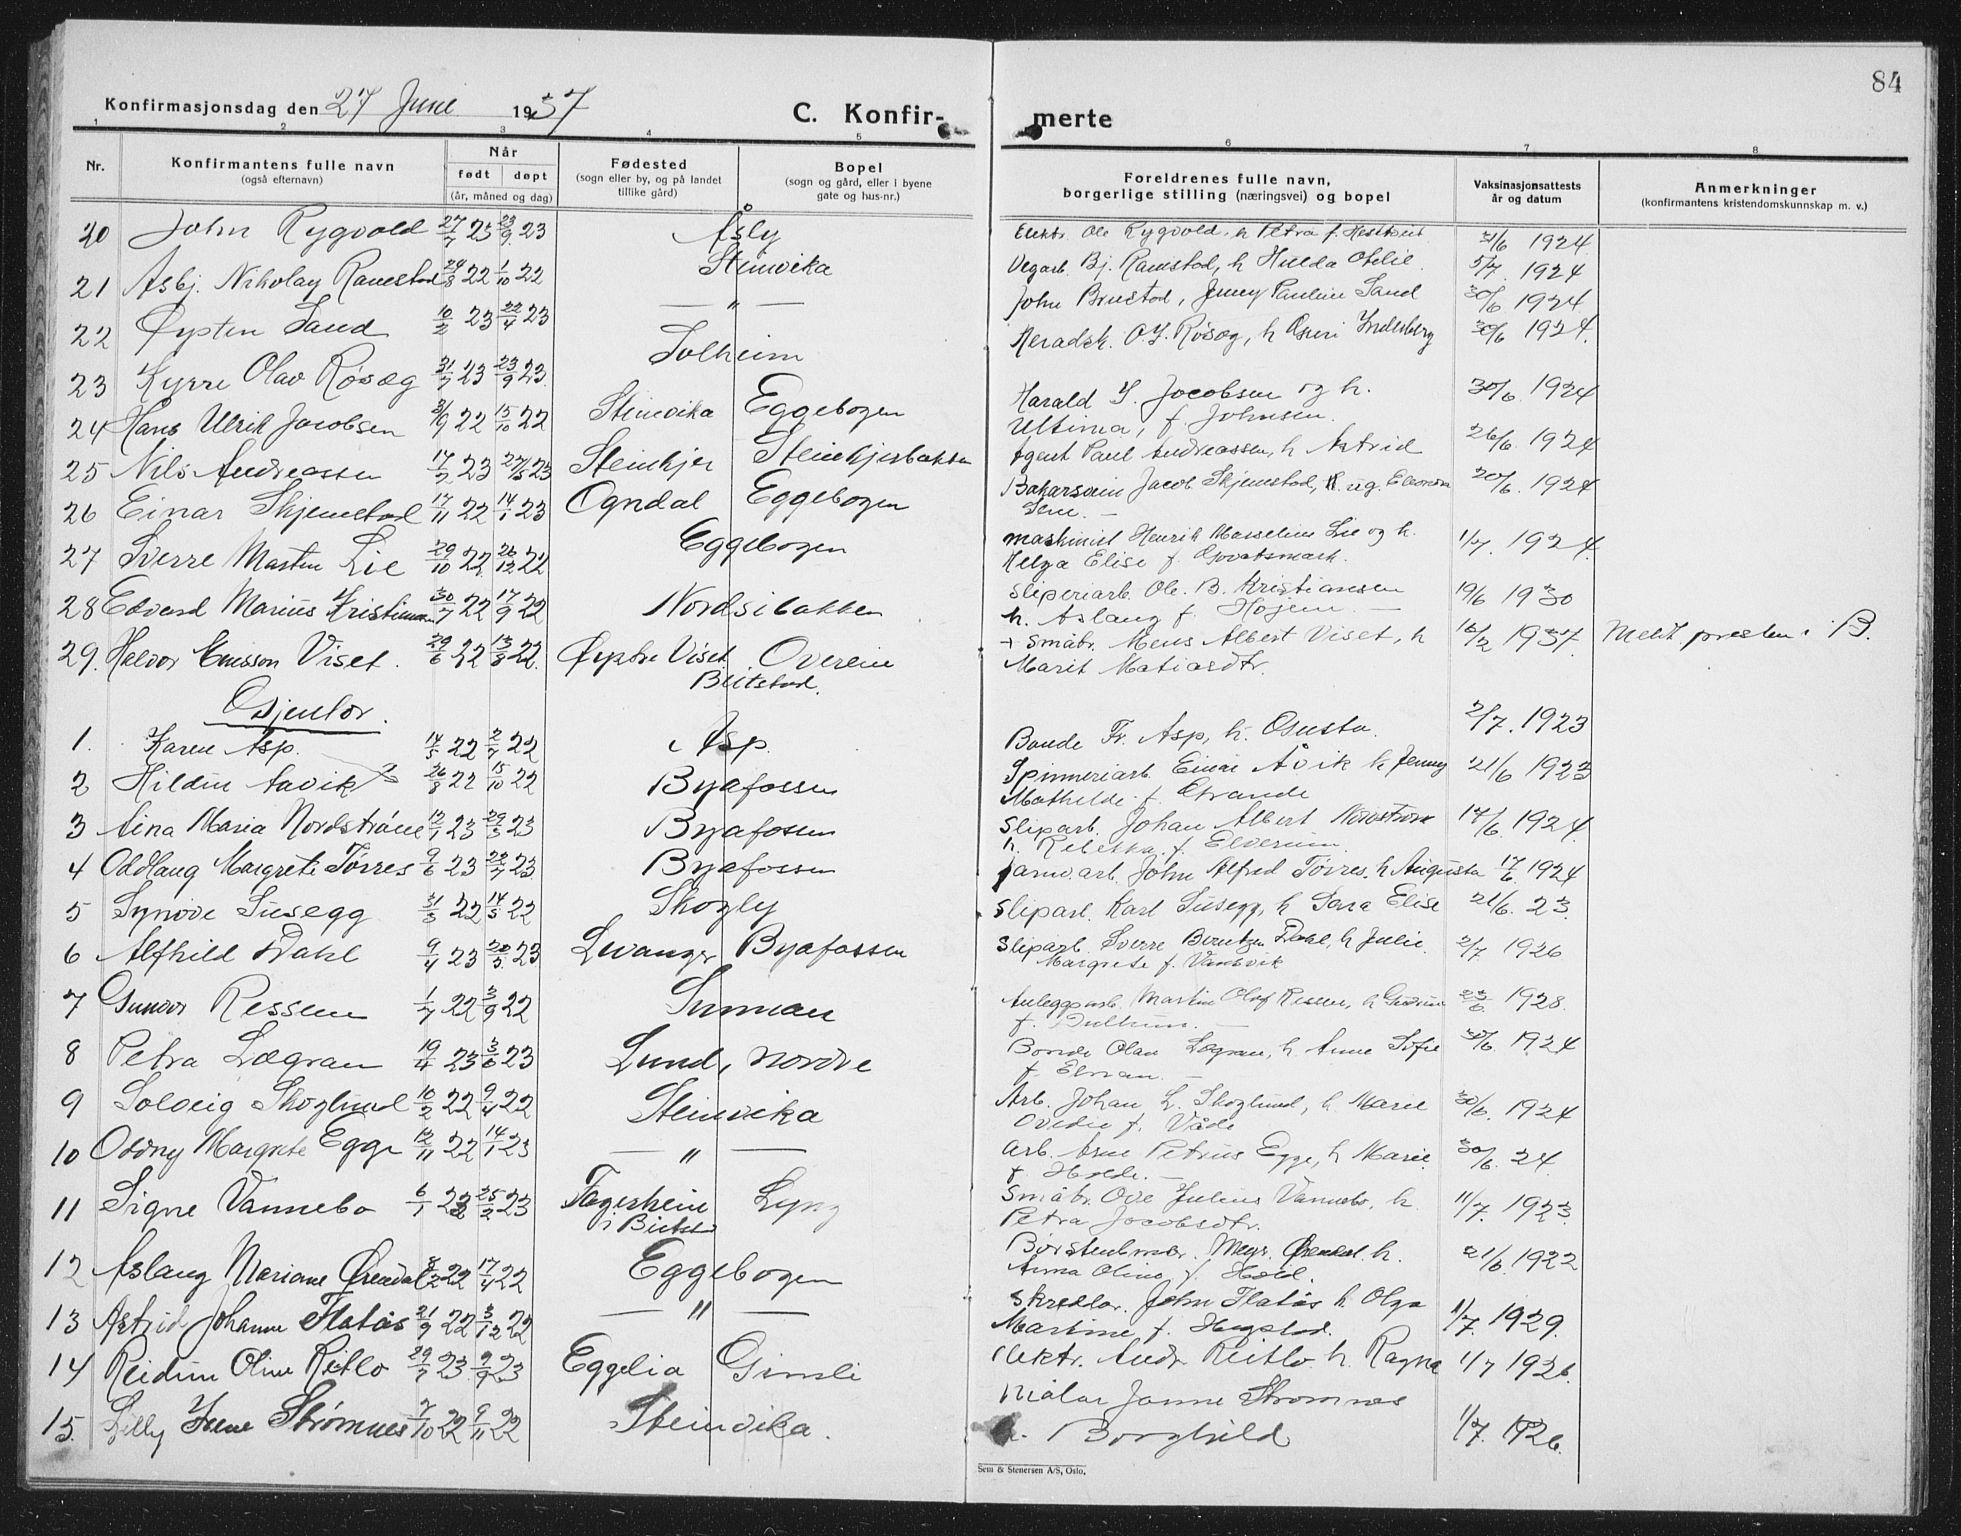 84
Konfirmasjonsdag den 27 June 1937
C. Konfir-
merte
1 2 3 4 5 6 7 8
Nr.
Konfirmantens fulle navn
(også efternavn)
Når
født døpt
(år, måned og dag)
Fødested
(sogn eller by, og på landet
tillike gård)
Bopel
(sogn og gård, eller i byene
gate og hus-nr.)
Foreldrenes fulle navn,
borgerlige stilling (næringsvei) og bopel
Vaksinasjonsattests
år og datum
Anmerkninger
(konfirmantens kristendomskunnskap m. v.)
20 John Rygvold 27/7 23 23/9 23 Åsly Ole Rygvold, h Petra f. 1924
21 Asbj. Nikolay Ramstad 24/8 22 1/10 22 Steinvika Vegarb. Bj. Ramstad, h Hulda Otelie 5/7 1924
22 Øysten Sand 10/2 23 22/4 23 — " — John Brustad, Jenny Pauline Sand 30/6 1924
23 Kyrre Olav Røsæg 31/7 23 23/9 23 Solheim Heradsk. O. J. Røsæg, h 30/6 1924.
24 Hans Ulrik Jacobsen 22 15/10 22 Steinvika Eggebogen Harald J. Jacobsen og h. 30/6 1924
Ultima, f. Johnsen.
25 Nils Andreassen 17/2 23 27/5 23 Steinkjer Steinkjerbakken Agent Paul Andreassen, h Astrid 26/6. 1924
26 Einar Skjemstad 17/11 22 14/1 23 Ogndal Eggebogen Jacob Skjemstad, 20/6. 1924
27 Sverre Martin Lie 29/10 22 26/12 22 Eggebogen maskinist Henrik Marselius Lie og h. 1/7. 1924.
Helga Elise f.
28 Edvard Marius Kristiansen 30/7 22 17/9 22 Nordsibakken Sliperiarb. Ole. B. Kristiansen 19/6 1930
h. Aslaug f. Højem. —
29. Halvor Viset. 29/6 22 13/8 22. Viset Overein + Småbr. Albert Viset, h 16/2 1937. Meldt presten i B.
Beitstad. Marit Matiasdtr.
Gjentor.
1. Karen Asp. 14/5 22 2/7 22 Asp. Bonde Fr. Asp, h. Gusta. 2/7. 1923
2 Hildur Aavik 26/8 22 15/10 22 Byafossen Spinneriarb. Einar Åvik h Jenny 21/6 1923
Mathilde f. Strande
3 Aina Maria Nordstrøm 12/1 23 29/3 23 Byafossen Sliparb. Johan Albert Nordstrøm 14/6. 1924.
h. Rebekka f. Elverum.
4 Oddlaug Margrete Tørres 9/6 23 22/7 23 Byafossen John Alfred Tørres. h Augusta 17/6 1924
5 Synøve Susegg 31/3 22 14/5 22 Skogly Sliparb. Karl Susegg, h Elise 21/6. 23.
6 Alfhild Dahl 9/4 23 23 Levanger Byafossen Sliparb. Sverre Berntzen Dahl, h Julie 2/7 1926
Margrete f.
7 Gunvor Ressem 1/7 22 3/9 22 Sunnan Anleggsarb. Martin Olaf Ressem, h 1928.
f.
8 Petra Lægran 19/4 23 3/6 23 Lund, nordre Bonde Olav Lægran, h Anne Sofie 1924
f.
9 Solveig Skoglund 10/2 22 9/4 22 Steinvika Arb. Johan L. Skoglund, h Marie 30/6. 1924
Ovidie f. Våde
10 Oddny Margrete Egge 12/11 22 14/1 23 — " — arb. Arne Petrus Egge, h Marie 30/6. 24
f. —
11 Signe Vannebo 6/1 23 25/2 23 Fagerheim Lyng Småbr. Ove Julius Vannebo, h. 11/7. 1923.
i Beitst Petra Jacobsdtr.
12 Aslaug Mariane 22 17/4 22 Eggebogen h. 21/6 1922
Anna f.
13 Astrid Johanne Flatås 21/9 22 3/12 22 — " — Skredder. John Flatås h Olga 1/7. 1929.
Martine f. Hegstad.
14 Reidun Oline Reitlo 29/7 23. 9/9 23 Eggelia Gimli Elektr. Andr. Reitlo. h. Ragna 1/7 1926.
15. Lilly Irene Strømnes 7/10 22 9/11 22 Steinvika. Malar Strømnes 1/7. 1926.
h. Borghild
Sem & Stenersen A/S, Oslo.